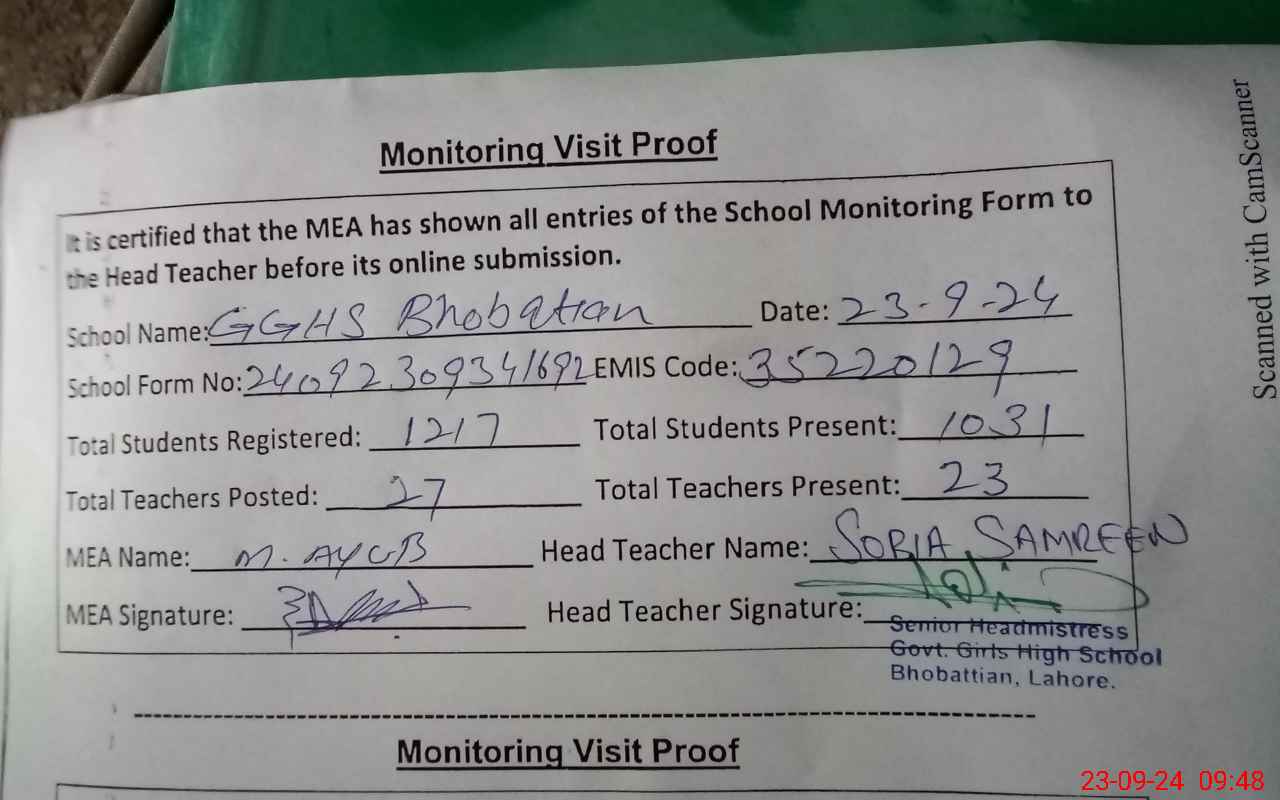 Monitoring Visit Proof
It is certified that the MEA has shown all entries of the School Monitoring Form to
the Head Teacher before its online submission.
School Name: GGHS Bhobattian Date: 23-9-24
School Form No: 240923309341692 EMIS Code: 35220129
Total Students Registered: 1217 Total Students Present: 1031
Total Teachers Posted: 27 Total Teachers Present: 23
MEA Name: M. AYUB Head Teacher Name: SOBIA SAMREEN
MEA Signature: Head Teacher Signature:
Senior Headmistress
Govt. Girls High School
Bhobattian, Lahore.
Monitoring Visit Proof
Scanned with CamScanner
23-09-24 09:48